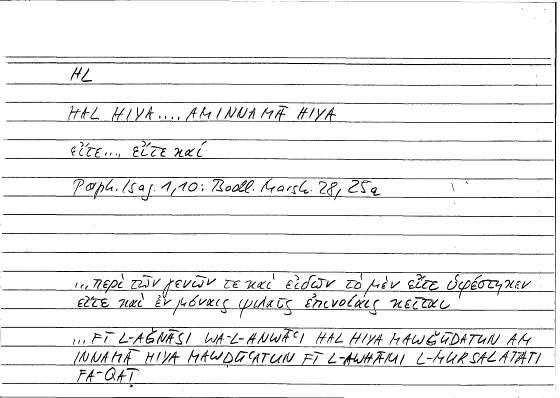 HL
HAL HIYA .... AM INNAMĀ HIYA
εἴτε ..., εἴτε καί
Porph. Isag. 1,10: Bodl. Marsh. 28, 25a
... περὶ τῶν γενῶν τε καὶ εἰδῶν τὸ μὲν εἴτε ὑφέστηκεν
εἴτε καὶ ἐν μόναις ψιλαῖς ἐπινοίαις κεῖται
... FĪ L-AǦNĀSI WA-L-ANWĀʿI HAL HIYA MAWǦŪDATUN AM
INNAMĀ HIYA MAWḌŪʿATUN FĪ L-AWHĀMI L-MURSALATATI
FA-QAṬ